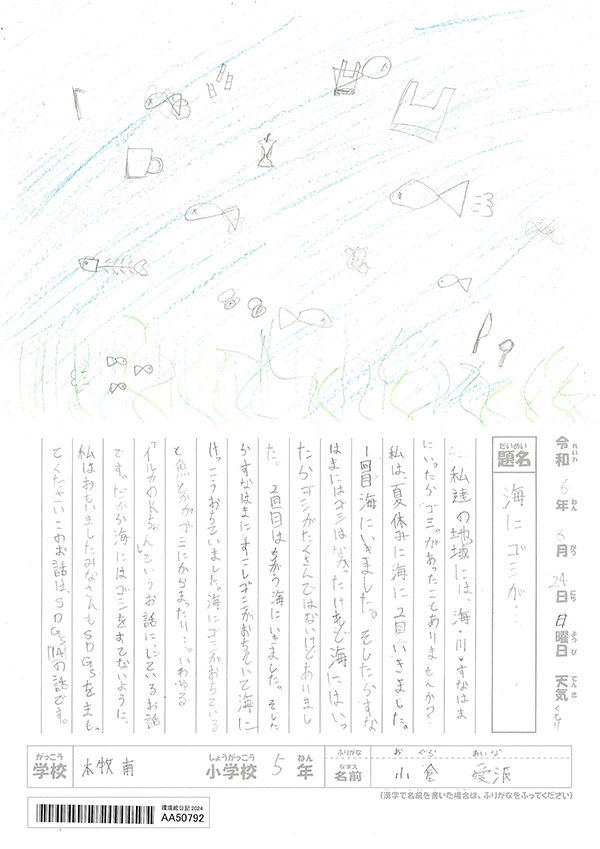 令和6年8月24日日曜日 天気くもり
れいわ ねん がつ にち ようび てんき
だいめい
題名
海にゴミが…
私達の地域には、海・川・すなはま
にいったらゴミがあったことありませんか?
私は、夏休みに海に2回いきました。
1回目海にいきました。そしたらすな
はまにはゴミはなかったけれど海にはいっ
たらゴミがたくさんではないけどありまし
た。2回目はちがう海にいきました。そした
らすなはまにすこしゴミがおちていて海に
けっこうおちていました。海にゴミがおちている
と魚とかがゴミにからまったり…。いわゆる
「イルカのKちゃん」というお話ににているお話
です。だから海にはゴミをすてないように、
私はおもいましたみなさんもSDGsをまも
てくださいこのお話は、SDGs14の話です。
がっこう
学校
本牧南
しょうがっこう
小学校
5
ねん
年
ふりがな
おぐら あいな
なまえ
名前
小倉 愛派
(漢字で名前を書いた場合は、ふりがなをふってください)
環境絵日記2024
AA50792